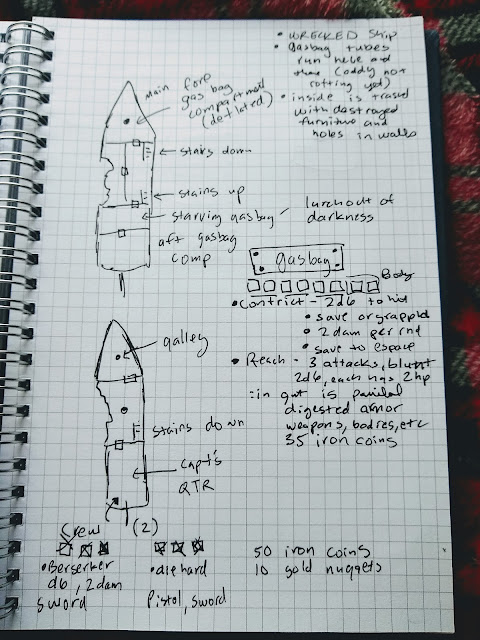 • WRECKED Ship
• Gasbag tubes
run here and
there (oddly not
rotting yet)
• inside is trased
with destroyed
furniture and
holes in walls
Main fore
gas bag
compartment
(deflated)
stairs down
stairs up
starving gasbag - lurch out of
darkness
aft gasbag
comp
gasbag
Body
• Contrict - 2d6 to hit
• save or grappld
• 2 dam per rnd
• save to espace
• Reach - 3 attacks, blunt
2d6, each has 2hp
: in gut is
digested armor
weapons, bodies, etc
35 iron coins
galley
stairs down
Capt's
QTR
Crew
(2)
• Berserker
d6, 2dam
sword
• diehard
Pistol, sword
50 iron coins
10 gold nuggets